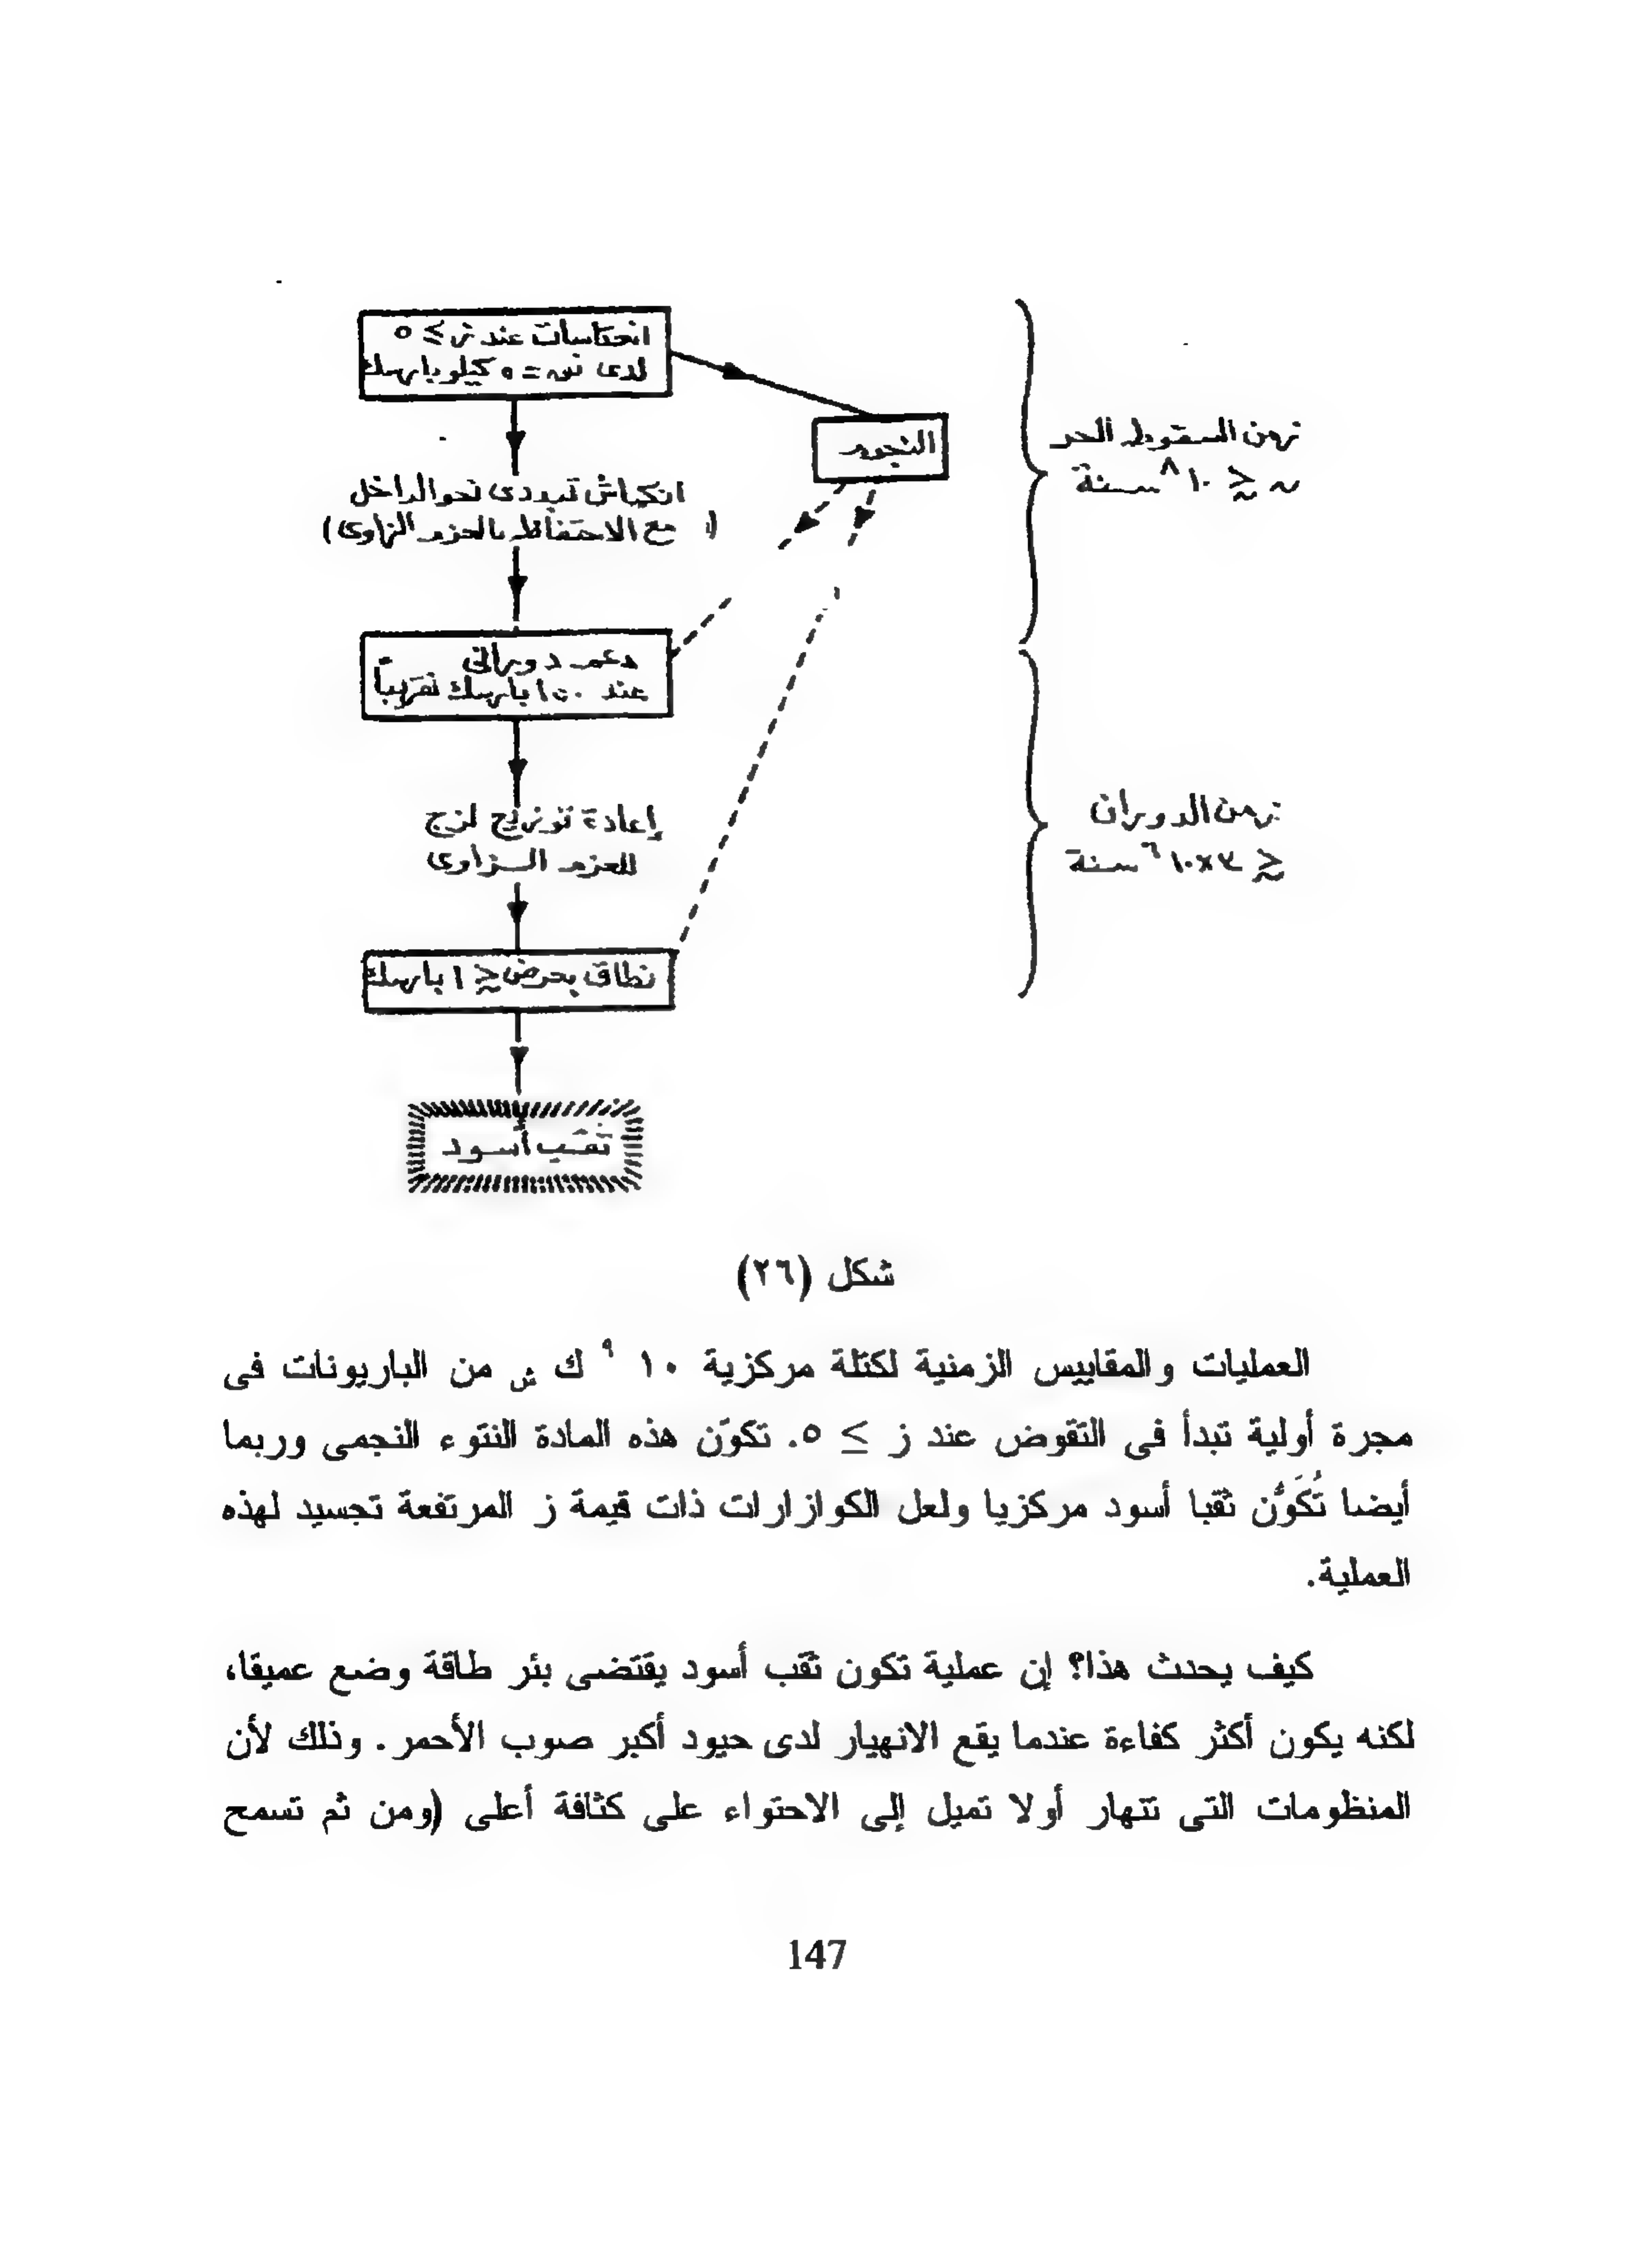 انعكاسات عند ز ≥ ٥
لدى نق = ٥ كيلو بارسك
النجوم
زمن السقوط الحر
~ ≲ ١٠ ٨ سنة
انكماش تبددى نحو الداخل
( مع الاحتفاظ بالعزم الزاوى)
دعم دورانى
عند ١٥٠ بارسك تقريباً
إعادة توزيع لزج
للعزم الزاوى
زمن الدوران
≲ ٣×١٠ ٦ سنة
نطاق بعرض ≲ ١ بارسك
ثقب أسود
شكل (٢٦)
العمليات والمقاييس الزمنية لكتلة مركزية ١٠ ٩ ك ش من الباريونات فى
مجرة أولية تبدأ فى التقوض عند ز ≥ ٥. تكوّن هذه المادة النتوء النجمى وربما
أيضا تُكَوُّن ثقبا أسود مركزيا ولعل الكوازارات ذات قيمة ز المرتفعة تجسيد لهذه
العملية.
كيف يحدث هذا؟ إن عملية تكون ثقب أسود يقتضى بئر طاقة وضع عميقا،
لكنه يكون أكثر كفاءة عندما يقع الانهيار لدى حيود أكبر صوب الأحمر. وذلك لأن
المنظومات التى تنهار أولا تميل إلى الاحتواء على كثافة أعلى (ومن ثم تسمح
147